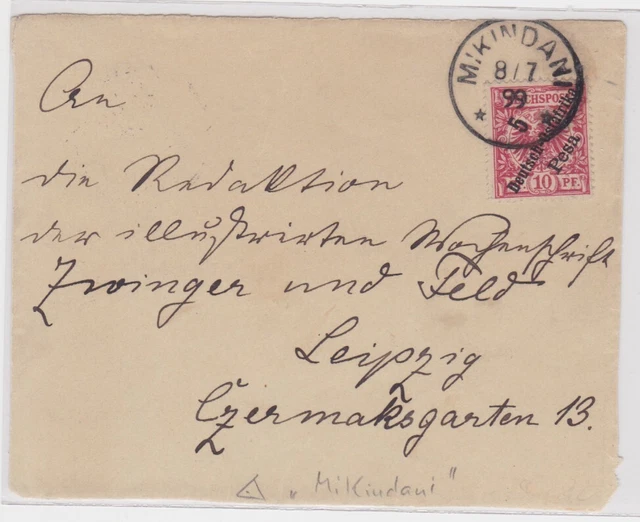 M'KINDANI
8/7
99
5
REICHSPOST
Deutsch-Ostafrika
5 Pesa
10 PF.
An
die Redaktion
der illustrirten Wochenschrift
Zwinger und Feld
Leipzig
Czermaksgarten 13.
"Mikindani"